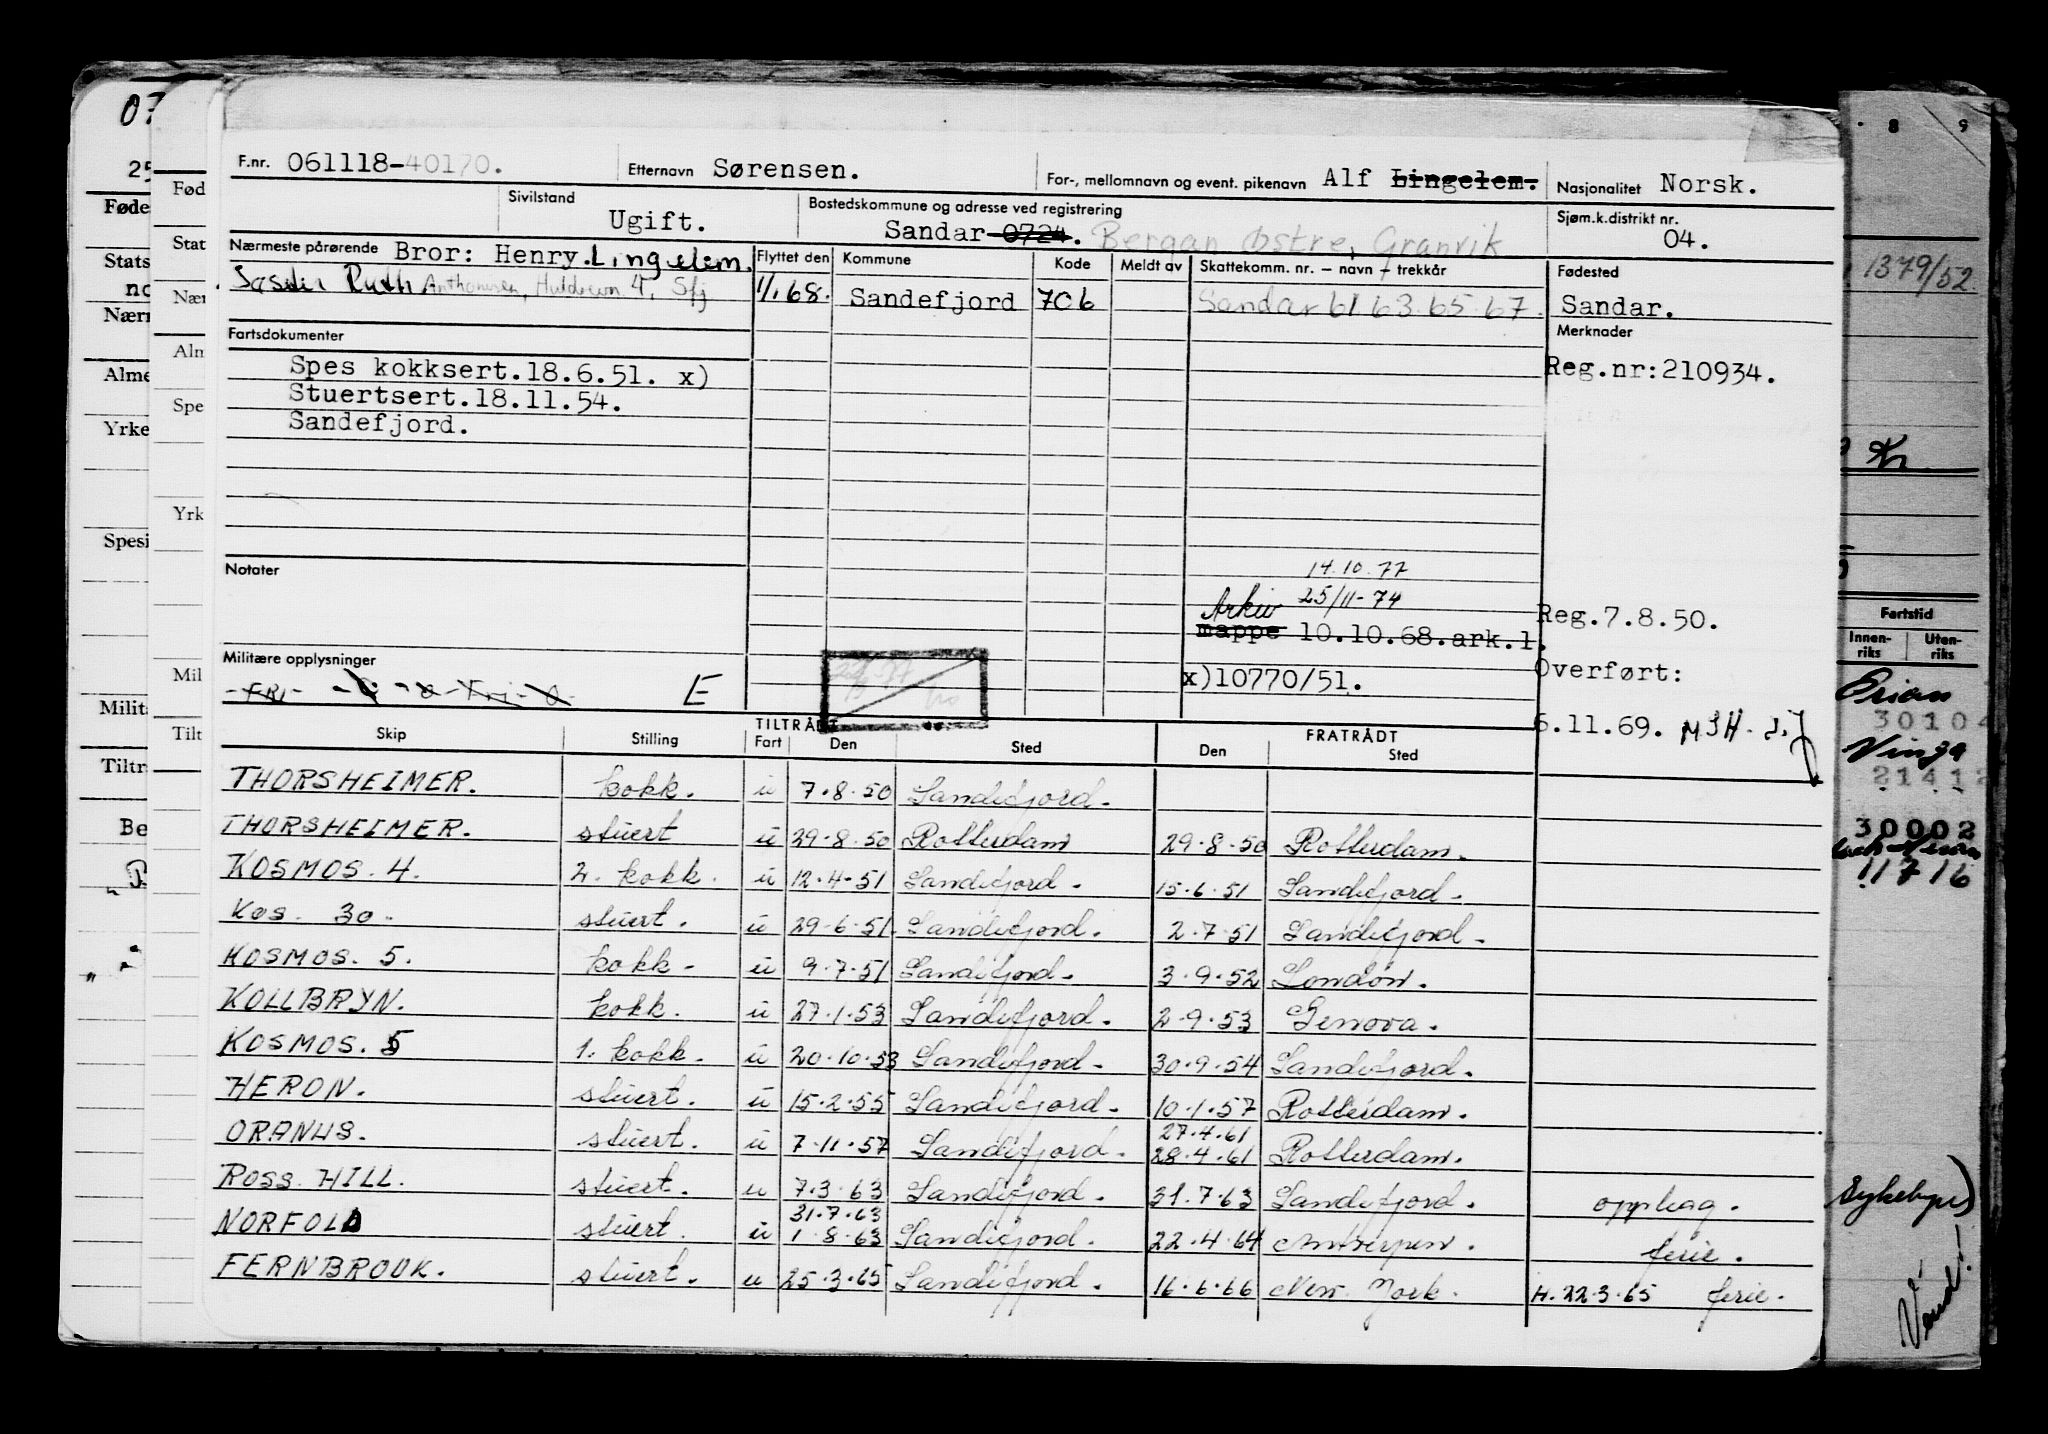 F.nr. 061118-40170. Etternavn Sørensen. For-, mellomnavn og event. pikenavn Alf Lingelem. Nasjonalitet Norsk.
Sivilstand Ugift. Bostedskommune og adresse ved registrering Sandar 0724. Bergan Østre, Granvik Sjøm.k.distrikt nr. 04.
Nærmeste pårørende Bror: Henry Lingelem. Flyttet den Kommune Kode Meldt av Skattekomm. nr. – navn – trekkår Fødested
Søster Ruth Anthonisen, Huldrevn. 4, Sfj 1/1 68. Sandefjord 706 Sandar 61 63. 65. 67. Sandar.
Fartsdokumenter Merknader
Spes kokksert. 18.6.51. x) Reg.nr: 210934.
Stuertsert. 18.11.54.
Sandefjord.
Notater 14.10.77
Arkiv 25/11-74
mappe 10.10.68. ark.1. Reg. 7.8.50.
Militære opplysninger x) 10770/51. Overført:
E
6.11.69.
TILTRÅDT FRATRÅDT
Skip Stilling Fart Den Sted Den Sted
THORSHEIMER. kokk. u 7.8.50 Sandefjord.
THORSHEIMER. stuert u 29.8.50 Rotterdam 29.8.50 Rotterdam.
KOSMOS. 4. 2. kokk. u 12.4.51 Sandefjord. 15.6.51 Sandefjord.
Kos. 30. stuert. u 29.6.51. Sandefjord. 2.7.51 Sandefjord.
KOSMOS. 5. kokk. u 9.7.51 Sandefjord. 3.9.52 London.
KOLLBRYN. kokk. u 27.1.53 Sandefjord. 2.9.53 Genova.
KOSMOS. 5 1. kokk. u 20.10.53 Sandefjord. 30.9.54 Sandefjord.
HERON. stuert. u 15.2.55 Sandefjord. 10.1.57 Rotterdam.
ORANUS. stuert. u 7.11.57 Sandefjord. 27.4.61 28.4.61 Rotterdam.
ROSS. HILL. stuert. u 7.3.63 Sandefjord. 31.7.63 Sandefjord. opplag.
NORFOLD stuert. u 31.7.63 1.8.63 Sandefjord. 22.4.64 Antwerpen. ferie.
FERNBROOK. stuert. u 25.3.65 Sandefjord. 16.6.66 New York. H. 22.3.65 ferie.
07
25
Føde
Stats
no
Nærn
Alme
Yrke
Spesi
Milita
Tiltr
Be
Fød
Stat
Nær
Aln
Spe
Yrk
Mil
Tilt
8 9
1379/52.
Kr
Fartstid
Innen-riks Uten-riks
30104
Vinga
21412
30002
11716
Vend!